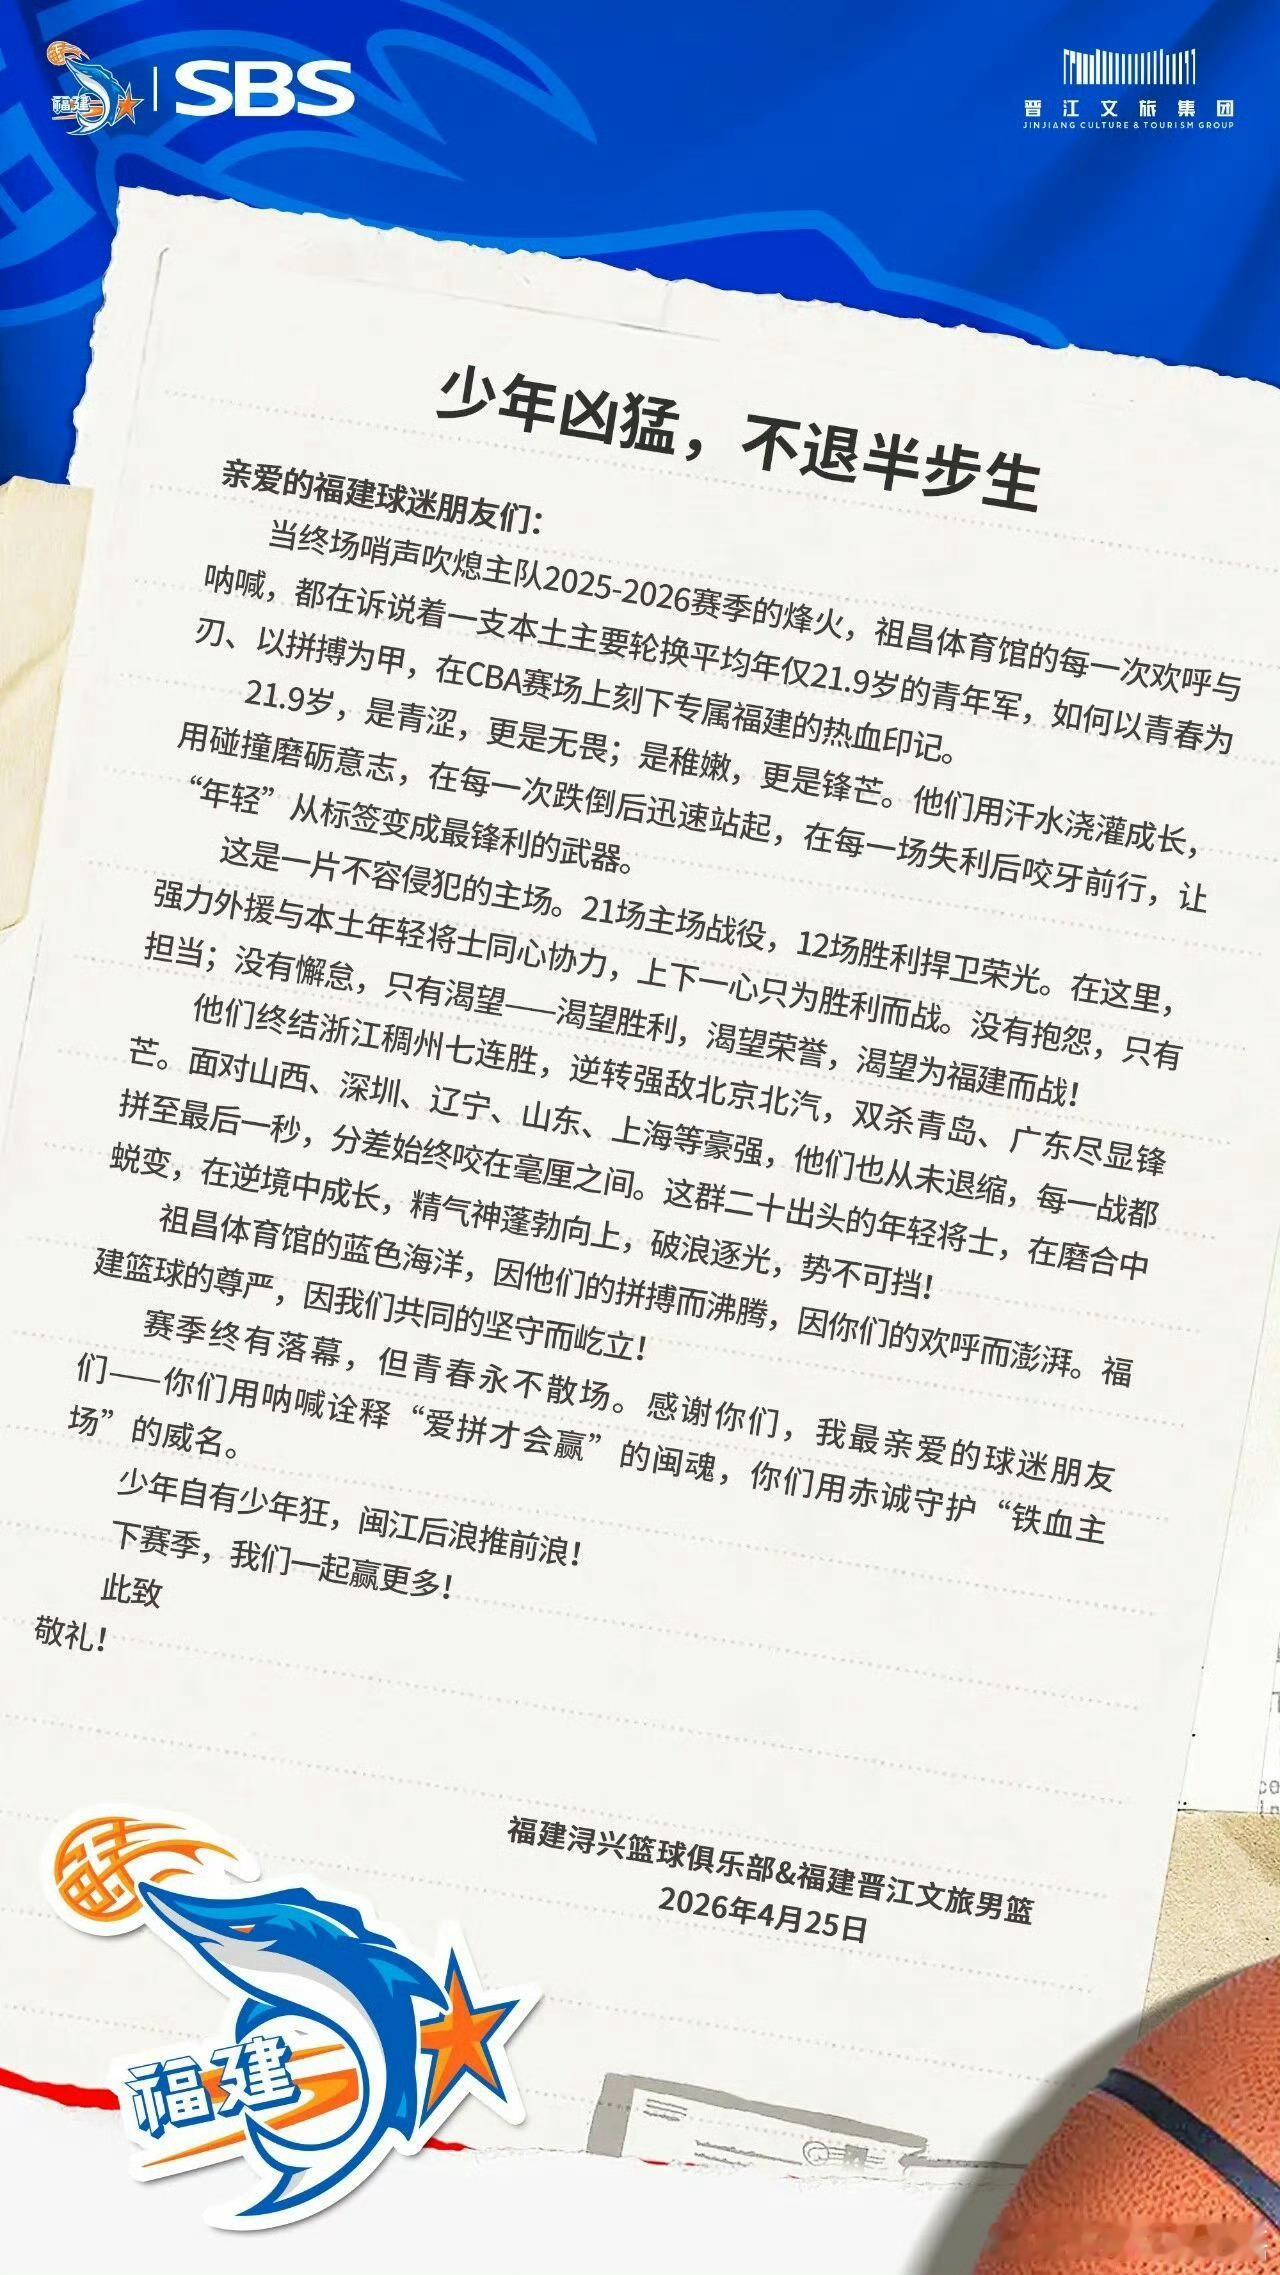 福建
SBS
晋江文旅集团
JINJIANG CULTURE & TOURISM GROUP
少年凶猛，不退半步生
亲爱的福建球迷朋友们：
当终场哨声吹熄主队2025-2026赛季的烽火，祖昌体育馆的每一次欢呼与
呐喊，都在诉说着一支本土主要轮换平均年仅21.9岁的青年军，如何以青春为
刃、以拼搏为甲，在CBA赛场上刻下专属福建的热血印记。
21.9岁，是青涩，更是无畏；是稚嫩，更是锋芒。他们用汗水浇灌成长，
用碰撞磨砺意志，在每一次跌倒后迅速站起，在每一场失利后咬牙前行，让
“年轻”从标签变成最锋利的武器。
这是一片不容侵犯的主场。21场主场战役，12场胜利捍卫荣光。在这里，
强力外援与本土年轻将士同心协力，上下一心只为胜利而战。没有抱怨，只有
担当；没有懈怠，只有渴望——渴望胜利，渴望荣誉，渴望为福建而战！
他们终结浙江稠州七连胜，逆转强敌北京北汽，双杀青岛、广东尽显锋
芒。面对山西、深圳、辽宁、山东、上海等豪强，他们也从未退缩，每一战都
拼至最后一秒，分差始终咬在毫厘之间。这群二十出头的年轻将士，在磨合中
蜕变，在逆境中成长，精气神蓬勃向上，破浪逐光，势不可挡！
祖昌体育馆的蓝色海洋，因他们的拼搏而沸腾，因你们的欢呼而澎湃。福
建篮球的尊严，因我们共同的坚守而屹立！
赛季终有落幕，但青春永不散场。感谢你们，我最亲爱的球迷朋友
们——你们用呐喊诠释“爱拼才会赢”的闽魂，你们用赤诚守护“铁血主
场”的威名。
少年自有少年狂，闽江后浪推前浪！
下赛季，我们一起赢更多！
此致
敬礼！
福建浔兴篮球俱乐部&福建晋江文旅男篮
2026年4月25日
福建